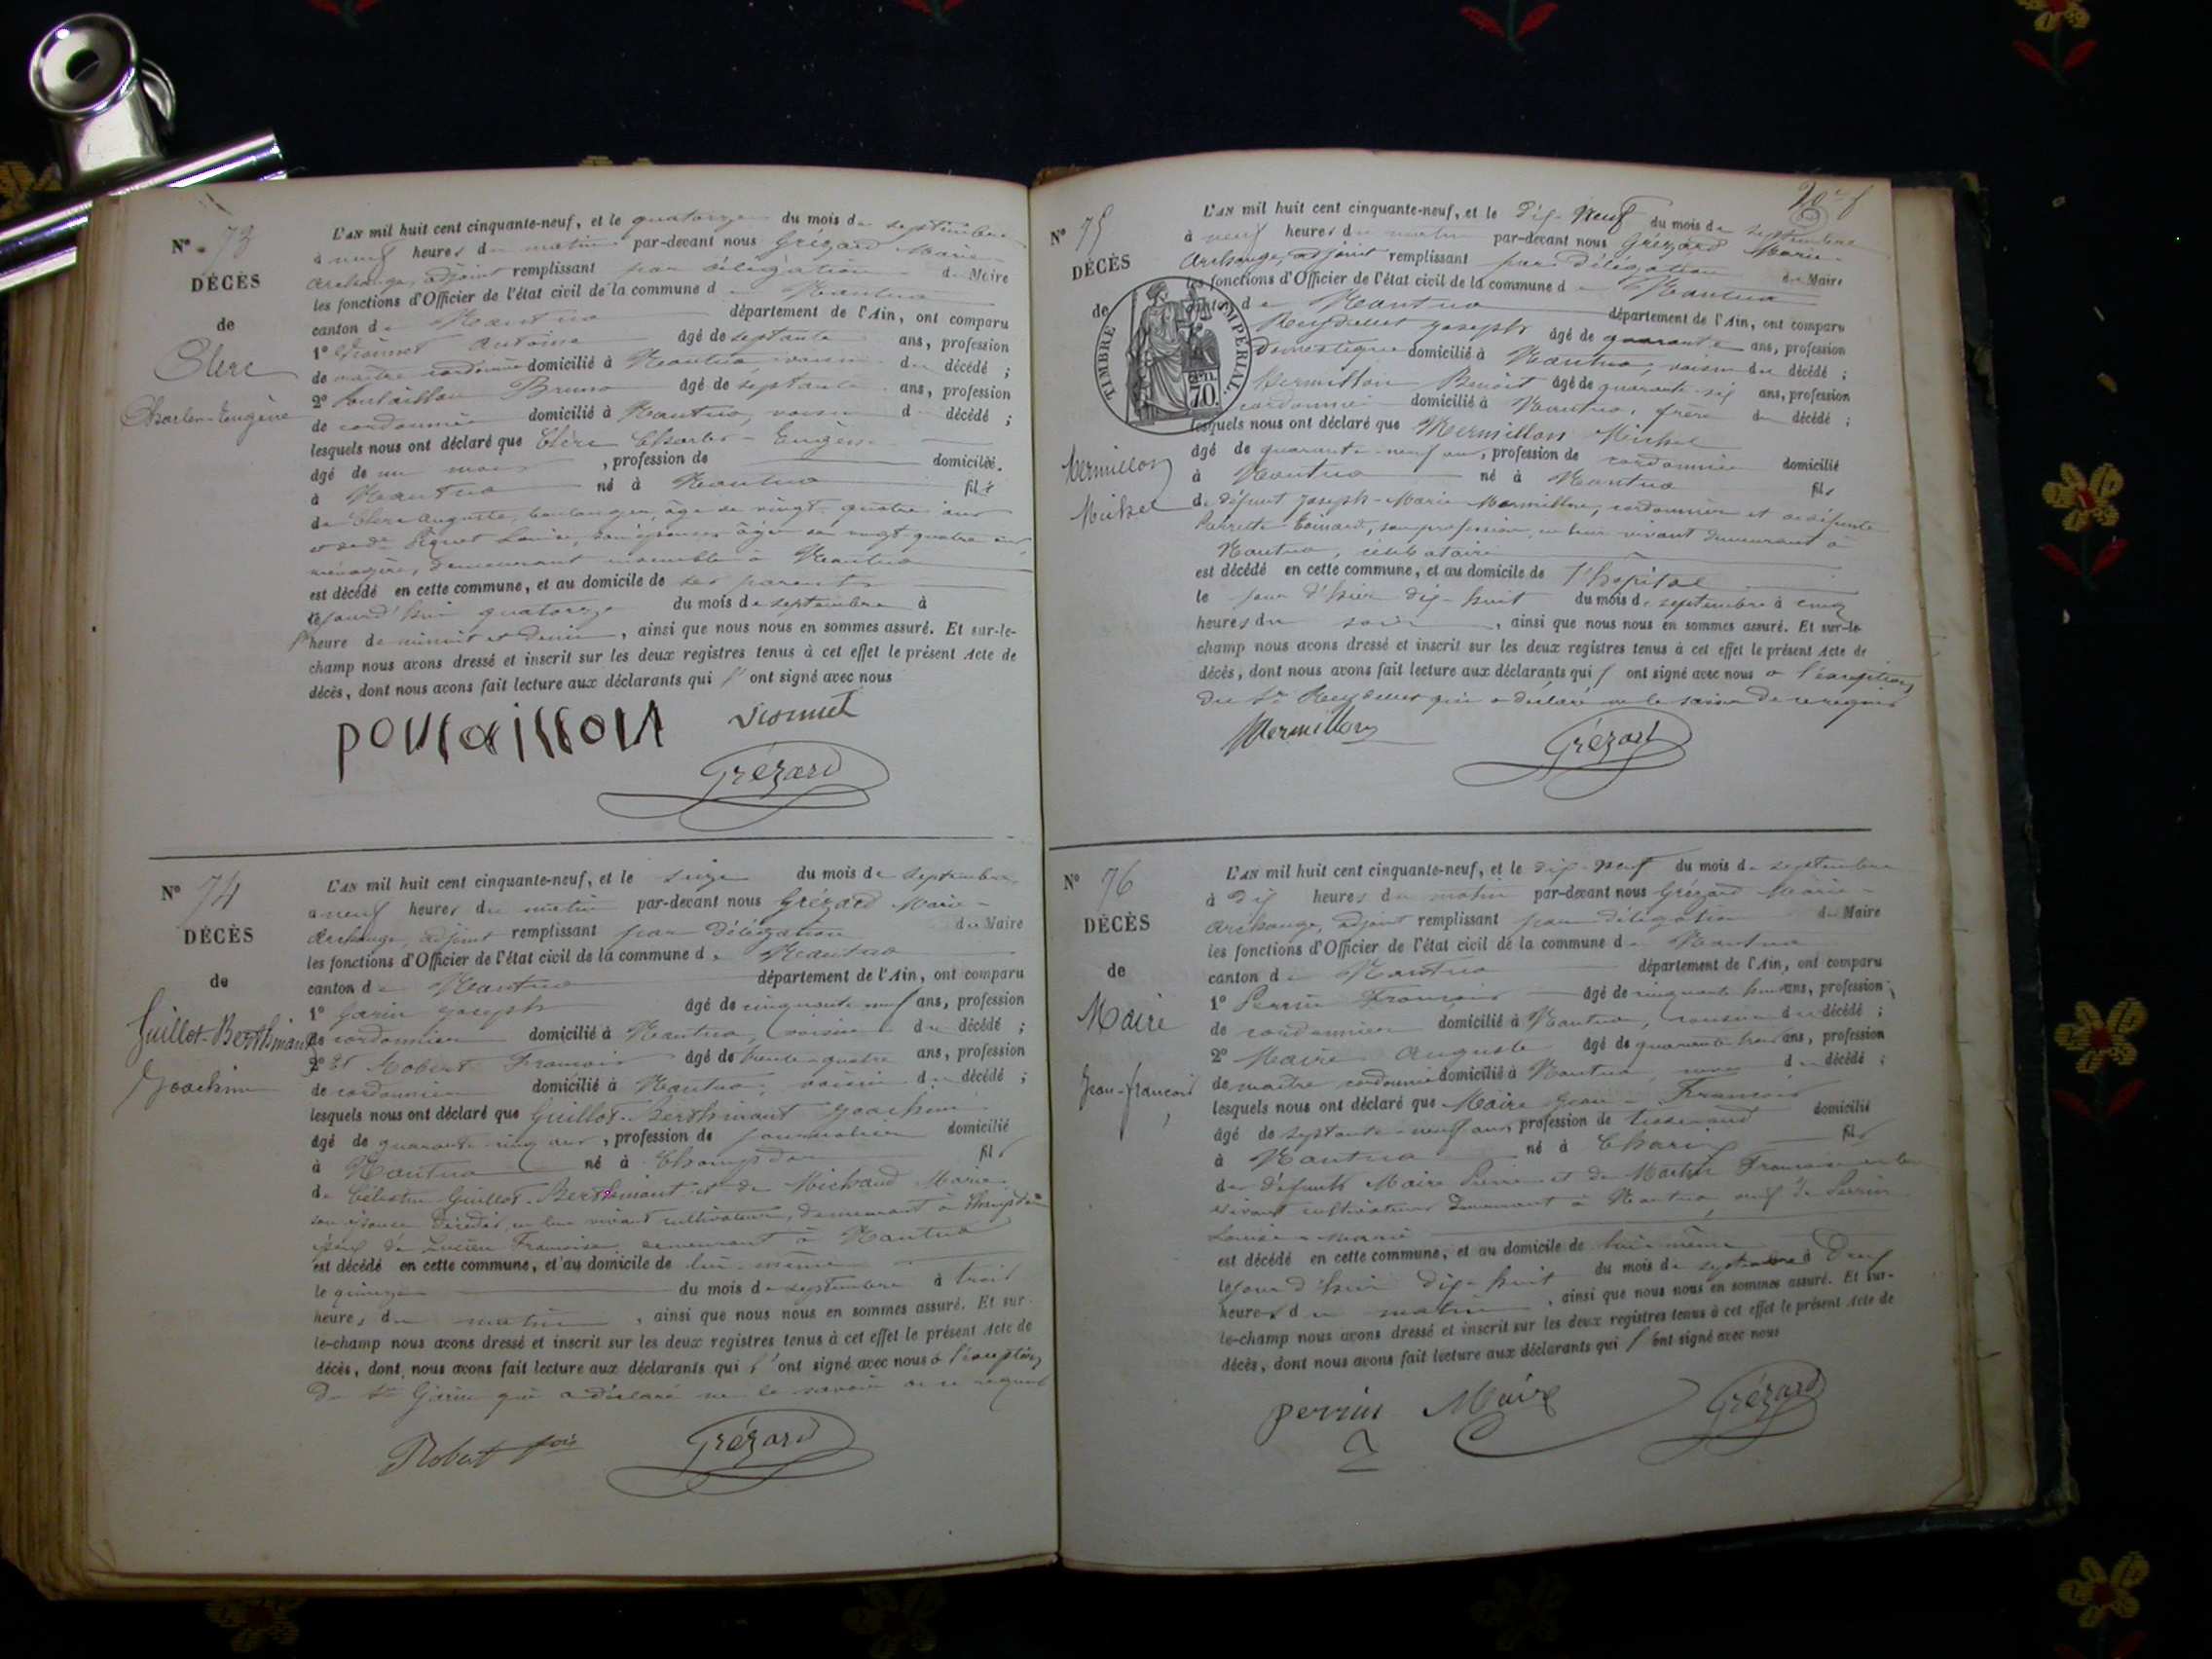 N° 73
DÉCÈS
de
Clerc
Charles-Eugène
L'AN mil huit cent cinquante-neuf, et le quatorze du mois de septembre
à neuf heures du matin par-devant nous Grézard Marie-
Archange, adjoint remplissant par délégation du Maire
les fonctions d'Officier de l'état civil de la commune de Nantua
canton de Nantua département de l'Ain, ont comparu
1° Antoine âgé de septante ans, profession
de maître cordonnier domicilié à Nantua, voisin du décédé ;
2° Poulaillon Bruno âgé de septante ans, profession
de cordonnier domicilié à Nantua, voisin du décédé ;
lesquels nous ont déclaré que Clerc Charles-Eugène
âgé de un mois, profession de domicilié
à Nantua né à Nantua fils
de Clerc Auguste, boulanger, âgé de vingt-quatre ans
et de Louise, son épouse âgée de vingt quatre ans,
ménagère, demeurant ensemble à Nantua
est décédé en cette commune, et au domicile de ses parents
le jourd'hui quatorze du mois de septembre à
l'heure de minuit et demie, ainsi que nous nous en sommes assuré. Et sur-le-
champ nous avons dressé et inscrit sur les deux registres tenus à cet effet le présent Acte de
décès, dont nous avons fait lecture aux déclarants qui l'ont signé avec nous
poulaillon Vionnet
Grézard
N° 74
DÉCÈS
de
Guillot-Berthinant
Joachim
L'AN mil huit cent cinquante-neuf, et le seize du mois de septembre
à neuf heures du matin par-devant nous Grézard Marie-
Archange, adjoint remplissant par délégation du Maire
les fonctions d'Officier de l'état civil de la commune de Nantua
canton de Nantua département de l'Ain, ont comparu
1° Garin Joseph âgé de cinquante neuf ans, profession
de cordonnier domicilié à Nantua, voisin du décédé ;
2° et Robert François âgé de trente-quatre ans, profession
de cordonnier domicilié à Nantua, voisin du décédé ;
lesquels nous ont déclaré que Guillot-Berthinant Joachim
âgé de quarante-cinq ans, profession de journalier domicilié
à Nantua né à Champdor fils
de Célestin Guillot-Berthinant et de Michaud Marie
son épouse décédés, en leur vivant cultivateurs, demeurant à Champdor
époux de Françoise demeurant à Nantua
est décédé en cette commune, et au domicile de lui-même
le quinze du mois de septembre à trois
heures du matin, ainsi que nous nous en sommes assuré. Et sur-
le-champ nous avons dressé et inscrit sur les deux registres tenus à cet effet le présent Acte de
décès, dont nous avons fait lecture aux déclarants qui l'ont signé avec nous à l'exception
du Sr Garin qui a déclaré ne le savoir de ce requis
Robert fois Grézard
N° 75
DÉCÈS
de
TIMBRE IMPÉRIAL
70
Mermillon
Michel
L'AN mil huit cent cinquante-neuf, et le dix-neuf du mois de septembre
à neuf heures du matin par-devant nous Grézard Marie-
Archange, adjoint remplissant par délégation du Maire
les fonctions d'Officier de l'état civil de la commune de Nantua
canton de Nantua département de l'Ain, ont comparu
Joseph âgé de quarante ans, profession
domestique domicilié à Nantua, voisin du décédé ;
Mermillon Benoit âgé de quarante-six ans, profession
cordonnier domicilié à Nantua, frère du décédé ;
lesquels nous ont déclaré que Mermillon Michel
âgé de quarante-neuf ans, profession de cordonnier domicilié
à Nantua né à Nantua fils
de défunt Joseph-Marie Mermillon, cordonnier et de défunte
Pierrette sans profession, en leur vivant demeurant à
Nantua, célibataire
est décédé en cette commune, et au domicile de l'hôpital
le jour d'hier dix-huit du mois de septembre à cinq
heures du soir, ainsi que nous nous en sommes assuré. Et sur-le-
champ nous avons dressé et inscrit sur les deux registres tenus à cet effet le présent Acte de
décès, dont nous avons fait lecture aux déclarants qui l'ont signé avec nous à l'exception
du Sr qui a déclaré ne le savoir de ce requis
Mermillon Grézard
N° 76
DÉCÈS
de
Maire
Jean-françois
L'AN mil huit cent cinquante-neuf, et le dix-neuf du mois de septembre
à dix heures du matin par-devant nous Grézard Marie-
Archange, adjoint remplissant par délégation du Maire
les fonctions d'Officier de l'état civil de la commune de Nantua
canton de Nantua département de l'Ain, ont comparu
1° Perrin François âgé de cinquante ans, profession
de cordonnier domicilié à Nantua, du décédé ;
2° Maire Auguste âgé de quarante trois ans, profession
de maître cordonnier domicilié à Nantua, du décédé ;
lesquels nous ont déclaré que Maire Jean-François
âgé de septante-neuf ans, profession de tisserand domicilié
à Nantua né à Charix fils
des défunts Maire Pierre et de Martin Françoise en leur
vivant cultivateurs demeurant à Nantua, veuf de Perrin
Louise-Marie
est décédé en cette commune, et au domicile de lui-même
le jour d'hier dix-huit du mois de septembre à deux
heures du matin, ainsi que nous nous en sommes assuré. Et sur-
le-champ nous avons dressé et inscrit sur les deux registres tenus à cet effet le présent Acte de
décès, dont nous avons fait lecture aux déclarants qui l'ont signé avec nous
perrin Maire Grézard